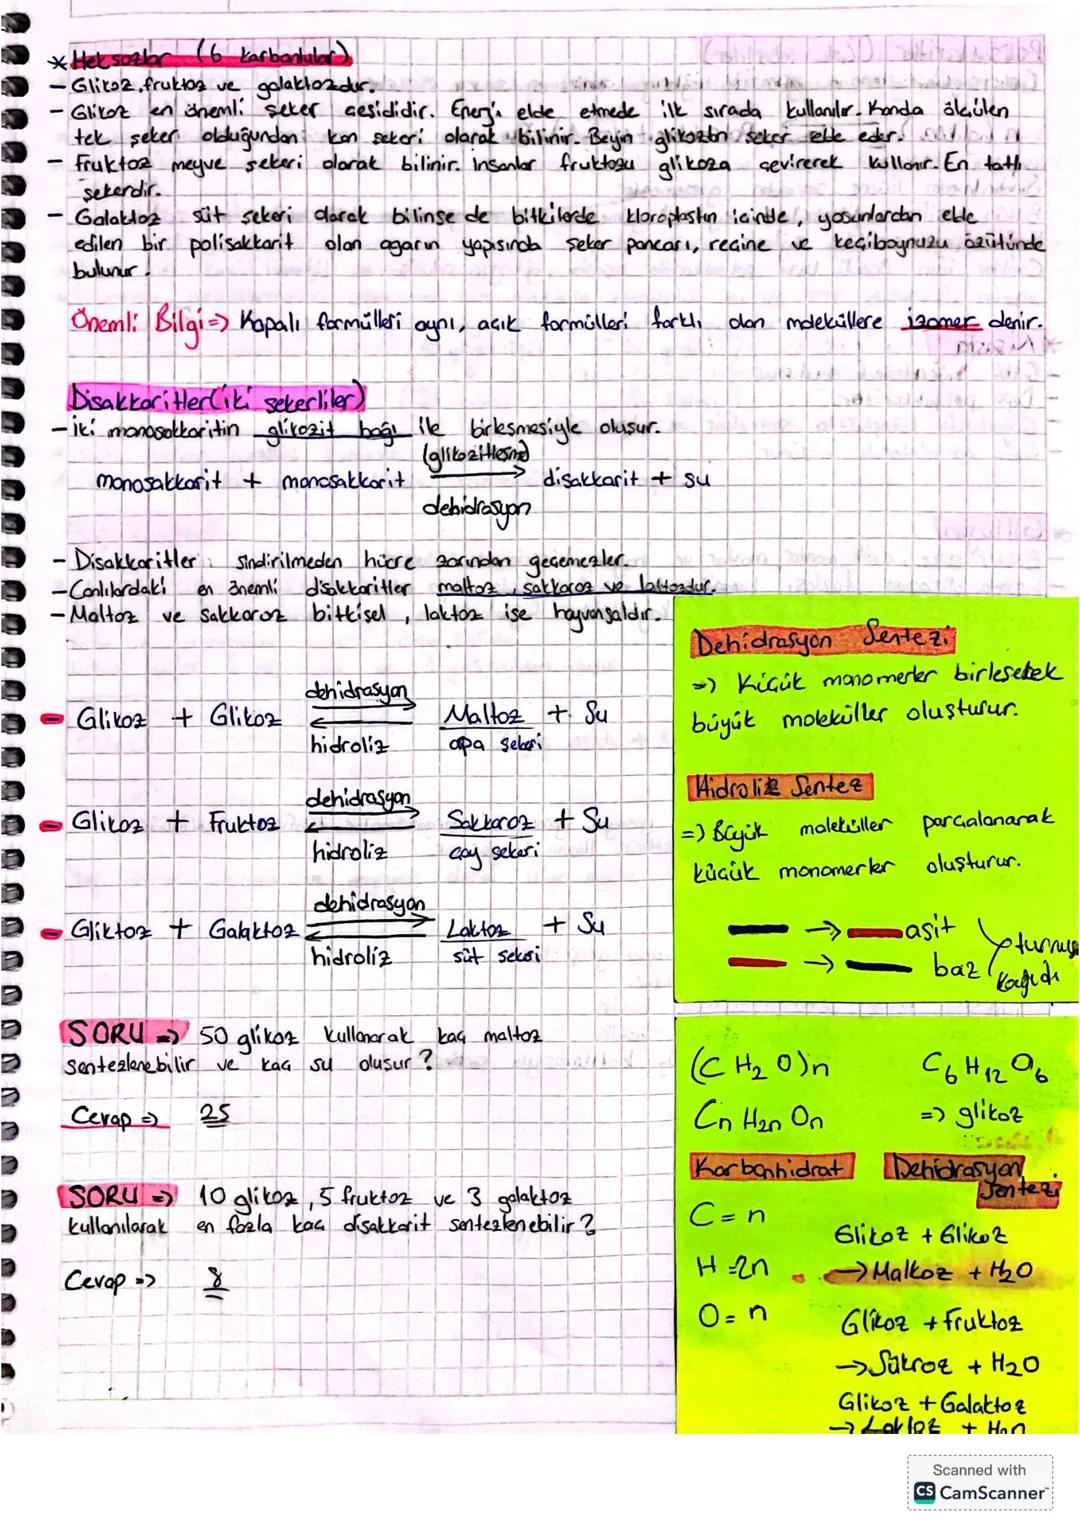 * Heksozlar (6 karbonlular)
- Glikoz, fruktoz ve galaktozdur.
- Glikoz en önemli şeker çeşididir. Enerji elde etmede ilk sırada kullanılır. Kanda ölçülen
tek şeker olduğundan kan şekeri olarak bilinir. Beyin glikozdan şeker elde eder.
- Fruktoz meyve şekeri olarak bilinir. İnsanlar fruktozu glikoza çevirerek kullanır. En tatlı
şekerdir.
- Galaktoz süt şekeri olarak bilinse de bitkilerde kloroplastın içinde, yosunlardan elde
edilen bir polisakkarit olan agarın yapısında şeker pancarı, reçine ve keçiboynuzu özütünde
bulunur.
Önemli Bilgi => Kapalı formülleri aynı, açık formülleri farklı olan moleküllere izomer denir.
Disakkaritler (iki şekerliler)
- İki monosakkaritin glikozit bağı ile birleşmesiyle oluşur.
(glikozitleşme)
monosakkarit + monosakkarit → disakkarit + su
dehidrasyon
- Disakkaritler sindirilmeden hücre zarından geçemezler.
- Canlılardaki en önemli disakkaritler maltoz, sakkaroz ve laktozdur.
- Maltoz ve sakkaroz bitkisel, laktoz ise hayvansaldır.
dehidrasyon
- Glikoz + Glikoz ⇄ Maltoz + Su
hidroliz arpa şekeri
dehidrasyon
- Glikoz + Fruktoz ⇄ Sakkaroz + Su
hidroliz çay şekeri
dehidrasyon
- Gliktoz + Galaktoz ⇄ Laktoz + Su
hidroliz süt şekeri
SORU => 50 glikoz kullanarak kaç maltoz
sentezlenebilir ve kaç su oluşur?
Cevap => 25
SORU => 10 glikoz, 5 fruktoz ve 3 galaktoz
kullanılarak en fazla kaç disakkarit sentezlenebilir?
Cevap => 8
Dehidrasyon Sentezi
=> Küçük monomerler birleşerek
büyük moleküller oluşturur.
Hidroliz Sentez
=> Büyük moleküller parçalanarak
küçük monomerler oluşturur.
→ asit
→ baz
turnusol
kağıdı
(CH2O)n C6H12O6
CnH2nOn => glikoz
Karbonhidrat
C = n
H = 2n
O = n
Dehidrasyon
Sentezi
Glikoz + Glikoz
→ Malkoz + H2O
Glikoz + Fruktoz
→ Sükroz + H2O
Glikoz + Galaktoz
→ Laktoz + H2O
Scanned with
CS CamScanner